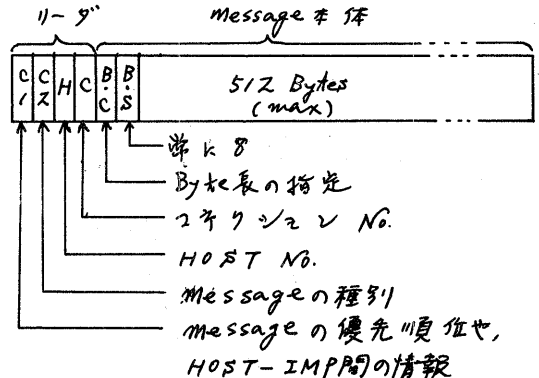 リーダ
message本体
C1
C2
H
C
B.C
B.S
512 Bytes
(max)
常に8
Byte長の指定
コネクション No.
HOST No.
messageの種別
messageの優先順位や,
HOST-IMP間の情報